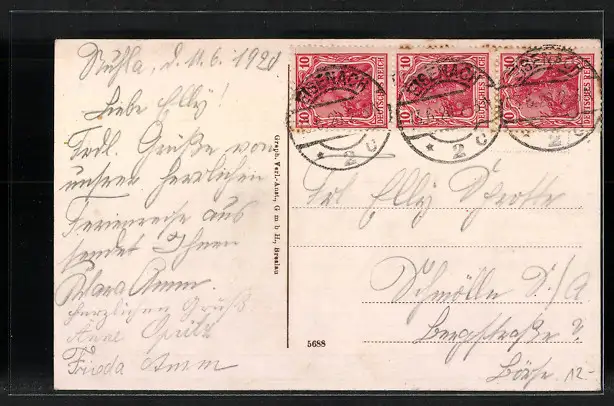 Ruhla, d. 11.6.1920
Liebe Elly!
Frdl. Grüße von
unsrer herrlichen
Ferienreise aus
sendet Ihnen
Klara Amm.
herzlichen Gruß
Änne Opitz
Frieda Amm
Graph. Verl.-Anst., G m b H., Breslau
5688
10 DEUTSCHES REICH 10
10 DEUTSCHES REICH 10
10 DEUTSCHES REICH 10
EISENACH
* 2 c
EISENACH
* 2 c
EISENACH
2 c
Frl. Elly Schrotte
Schmölln S./A
Bergstraße 2
12.-